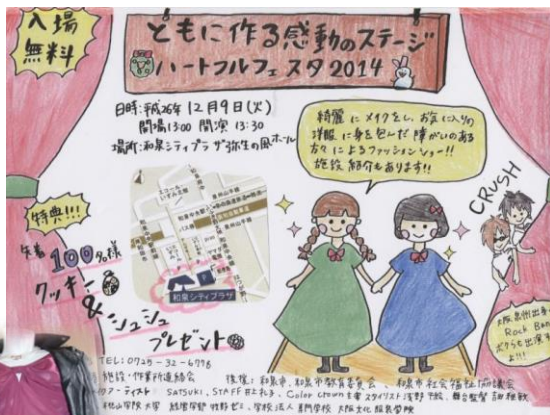 入場
無料
ともに作る感動のステージ
ハートフルフェスタ2014
日時:平成26年12月9日(火)
開場13:00 開演13:30
場所:和泉シティプラザ弥生の風ホール
綺麗にメイクをし、お気に入りの
洋服に身を包んだ障がいのある
方々によるファッションショー!!
施設紹介もあります!!
CRUSH
特典!!!
先着100名様
クッキー
&シュシュ
プレゼント
和泉シティプラザ
大阪泉州出身の
Rock Band
ボクらも出演する
よ!!!
TEL:0725-32-6776
施設・作業所連絡会
後援:和泉市、和泉市教育委員会、和泉市社会福祉協議会
アーティスト SATSUKi, STAFF
Color Crown 主宰
桃山学院大学 経営学部 牧野ゼミ、学校法人 専門学校 大阪文化服装学院